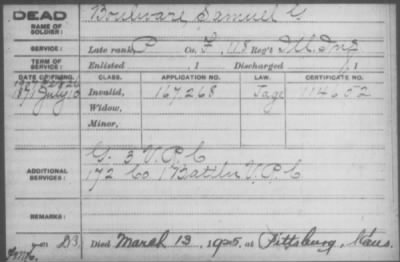 DEAD
NAME OF SOLDIER: Boulware, Samuel G.
SERVICE: Late rank, P Co. F, 118 Reg't Ill. Inf
TERM OF SERVICE: Enlisted , 1 Discharged , 1
DATE OF FILING. CLASS. APPLICATION NO. LAW. CERTIFICATE NO.
1879 July 10 Invalid, 167.268 114652
Widow,
Minor,
ADDITIONAL SERVICES: G. 3 V.R.C
172 Co 1 Batiln V.R.C
REMARKS:
Died March 13, 1925, at Pittsburg, Kans.